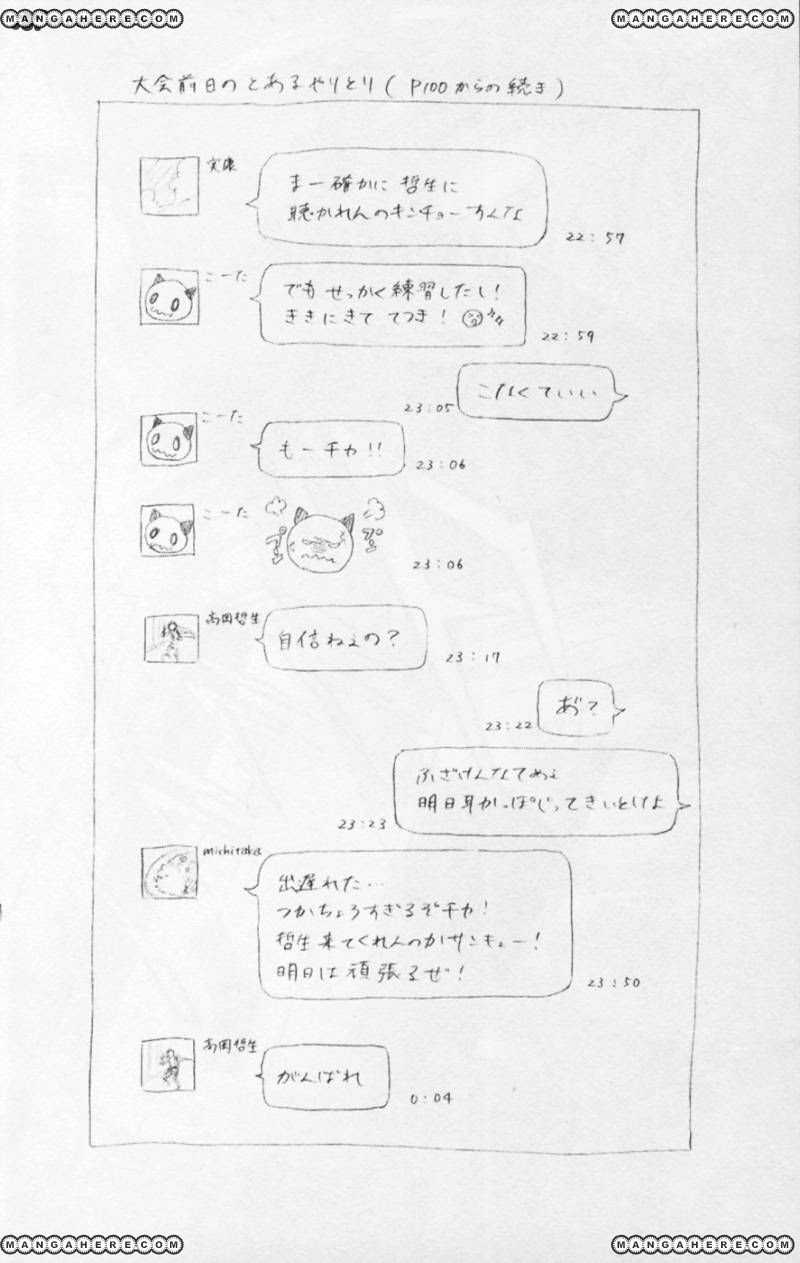 MANGAHERE.COM
MANGAHERE.COM
大会前日のとあるやりとり(P100からの続き)
実康
まー確かに哲生に
聴かれんのキンチョーすんな
22:57
こーた
でもせっかく練習したし!
ききにきて てつき!
22:59
こなくていい
23:05
こーた
もーチカ!!
23:06
こーた
プン
プン
23:06
高岡哲生
自信ねぇの?
23:17
あ゛?
23:22
ふざけんなてめぇ
明日耳かっぽじってきいとけよ
23:23
michitaka
出遅れた…
つかちょろすぎるぞチカ!
哲生来てくれんのかサンキュー!
明日は頑張るぜ!
23:50
高岡哲生
がんばれ
0:04
MANGAHERE.COM
MANGAHERE.COM